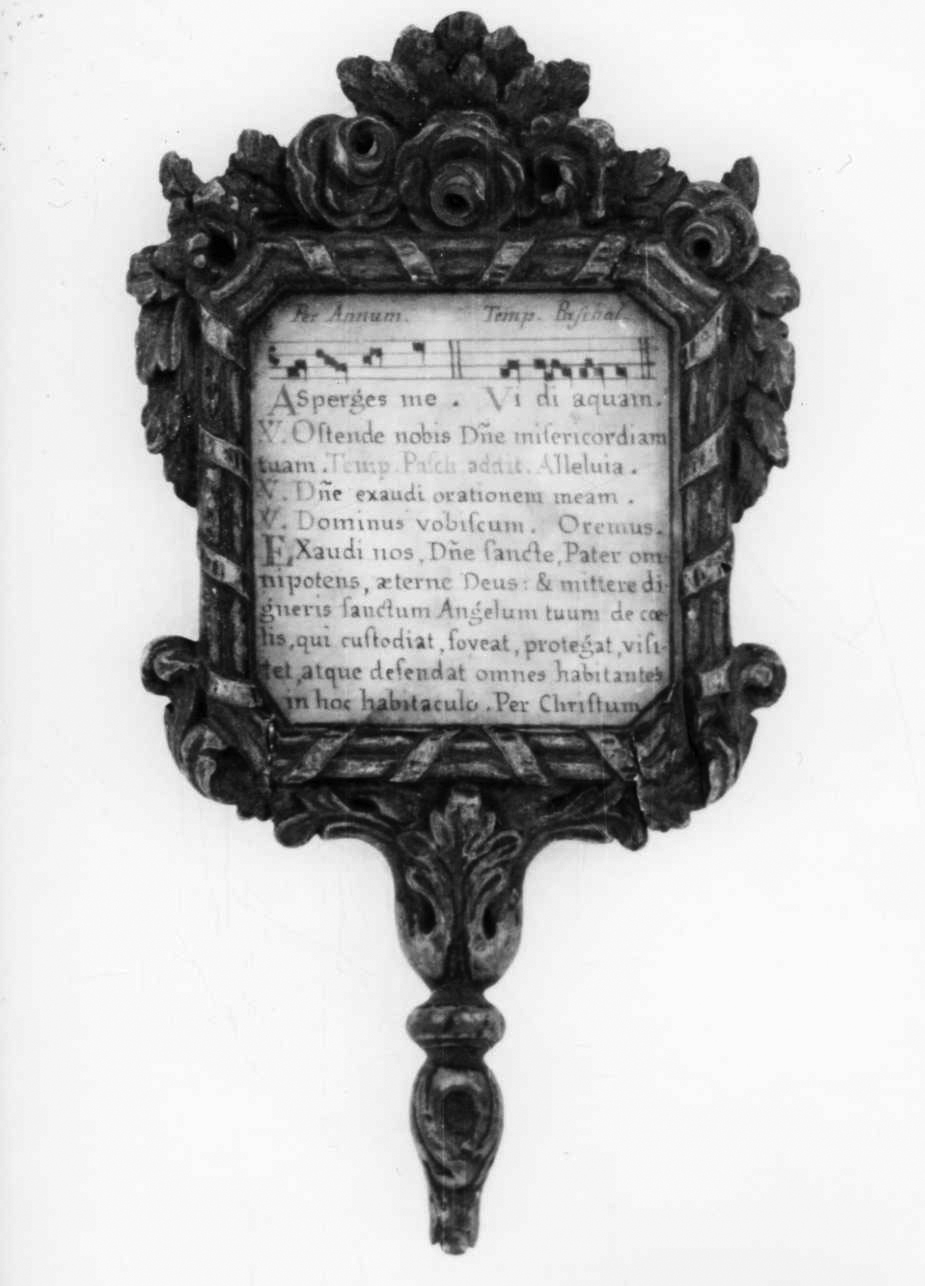 Per Annum. Temp. Paſchal.
ASperges me . Vi di aquam.
V. Oſtende nobis Dñe miſericordiam
tuam . Temp. Paſch addit. Alleluia .
V. Dñe exaudi orationem meam .
V. Dominus vobiſcum. Oremus.
EXaudi nos, Dñe ſancte, Pater om-
nipotens, æterne Deus: & mittere di-
gneris ſanctum Angelum tuum de cœ-
lis, qui cuſtodiat, foveat, protegat, viſi-
tet, atque defendat omnes habitantes
in hoc habitaculo . Per Chriſtum